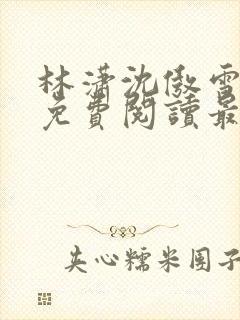 林潇沈傲雪
免費閱讀最
夹心糯米团子